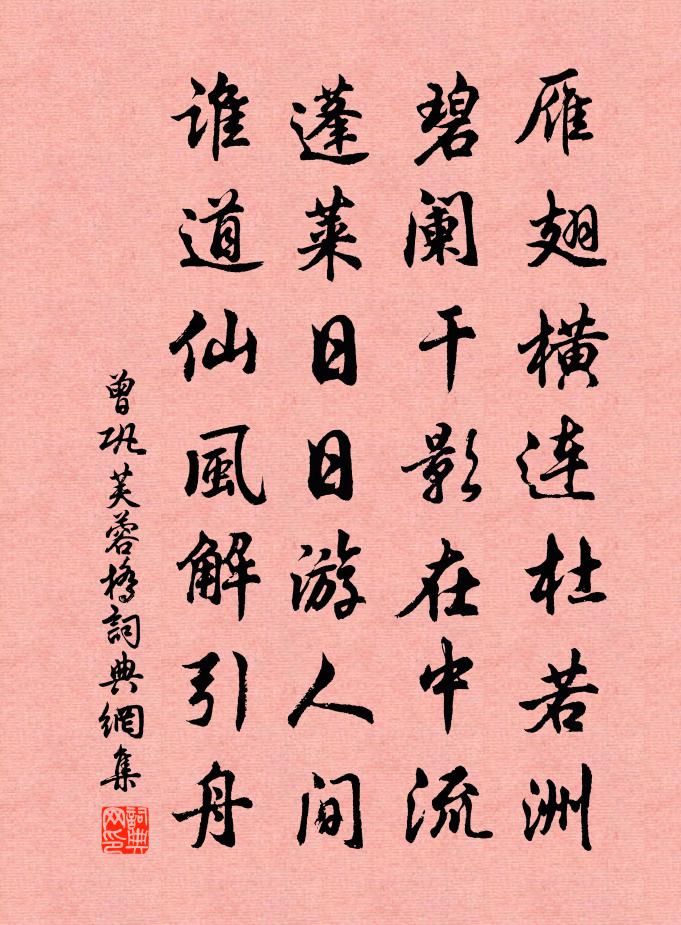 雁翅横连杜若洲
碧阑干影在中流
蓬莱日日游人间
谁道仙風解引舟
曾巩芙蓉橋詞典網集
詞典网印